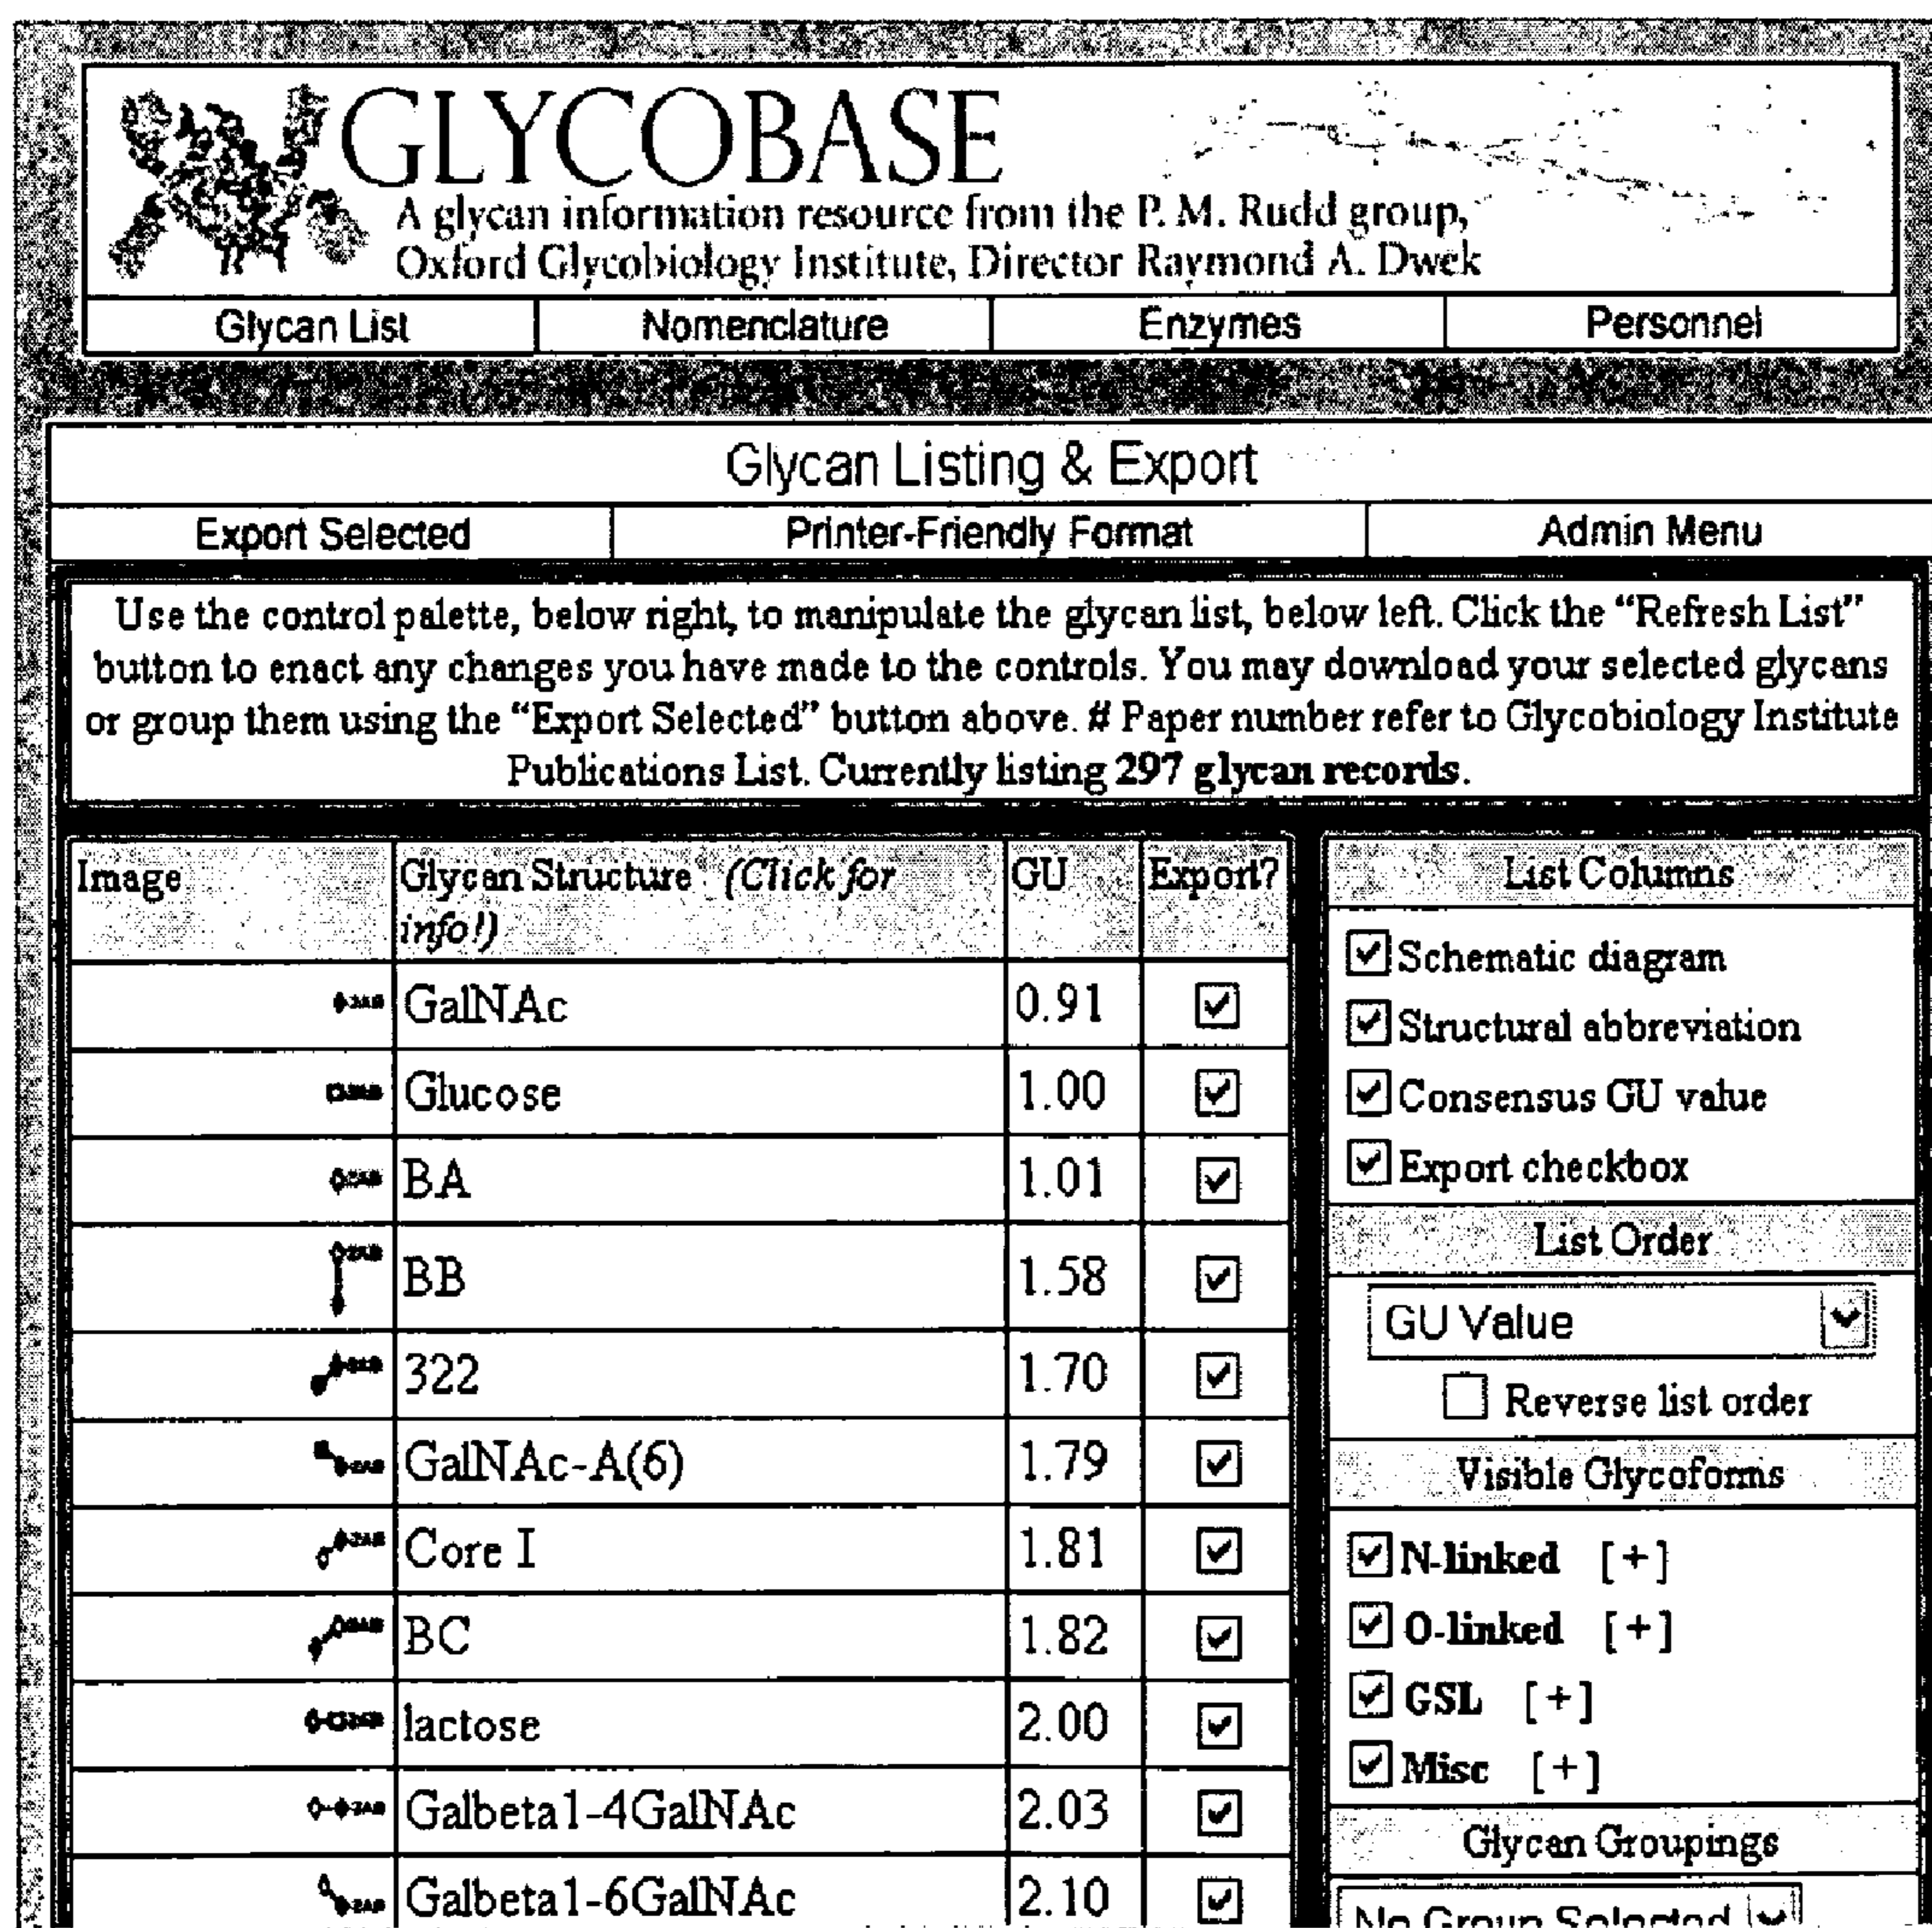 GLYCOBASE
A glycan information resource from the P. M. Rudd group,
Oxford Glycobiology Institute, Director Raymond A. Dwek
Glycan List Nomenclature Enzymes Personnel
Glycan Listing & Export
Export Selected Printer-Friendly Format Admin Menu
Use the control palette, below right, to manipulate the glycan list, below left. Click the “Refresh List”
button to enact any changes you have made to the controls. You may download your selected glycans
or group them using the “Export Selected” button above. # Paper number refer to Glycobiology Institute
Publications List. Currently listing 297 glycan records.
Image Glycan Structure (Click for info!) GU Export?
GalNAc 0.91
Glucose 1.00
BA 1.01
BB 1.58
322 1.70
GalNAc-A(6) 1.79
Core I 1.81
BC 1.82
lactose 2.00
Galbeta1-4GalNAc 2.03
Galbeta1-6GalNAc 2.10
List Columns
Schematic diagram
Structural abbreviation
Consensus GU value
Export checkbox
List Order
GU Value
Reverse list order
Visible Glycoforms
N-linked [+]
O-linked [+]
GSL [+]
Misc [+]
Glycan Groupings
No Group Selected